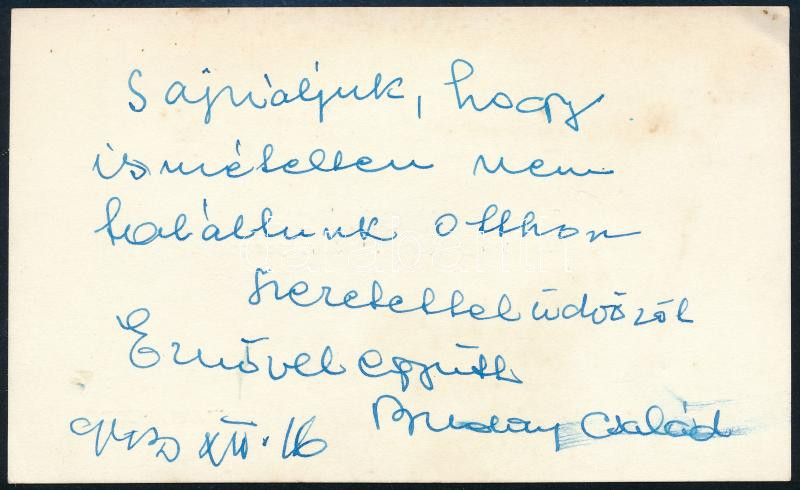 Sajnáljuk, hogy
ismételten nem
találtunk otthon
szeretettel üdvözöl
Ernővel együtt
család
XII. 16